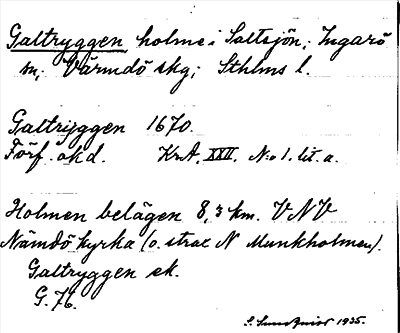 Galtryggen, holme i Saltsjön; Ingarö
sn; Värmdö skg; Sthlms l.
Galtryggen 1670.
Förf. okd. KrA. XXII. No 1. lit. a.
Holmen belägen 8,3 km. VNV
Nämdö kyrka (o. strax N Munkholmen).
Galtryggen ek.
G. 76.
S. Sundqvist 1935.